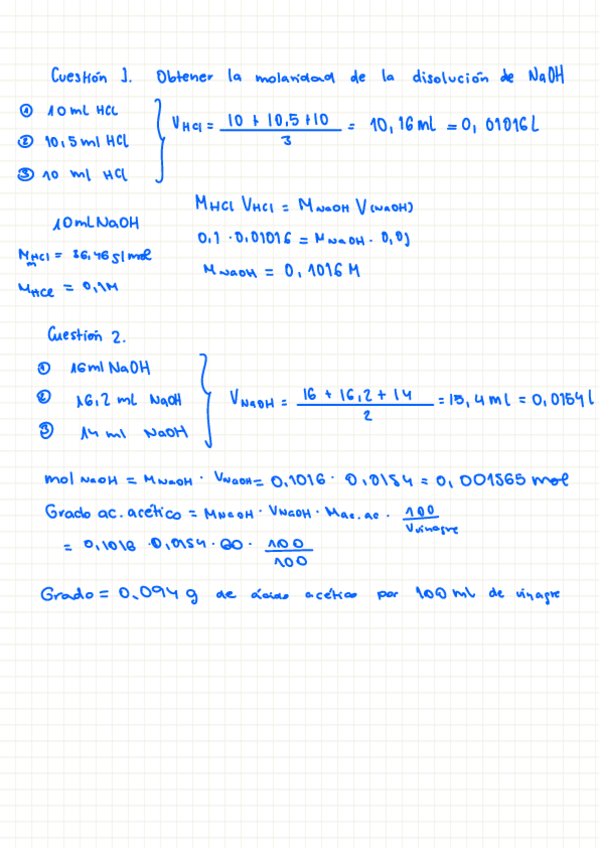 Cuestión 1. Obtener la molaridad de la disolución de NaOH
① 10 ml HCl
② 10,5 ml HCl
③ 10 ml HCl
V HCl = (10 + 10,5 + 10) / 3 = 10,16 ml = 0,01016 L
M HCl V HCl = M NaOH V (NaOH)
10 ml NaOH
0,1 · 0,01016 = M NaOH · 0,01
M HCl = 36,46 g/mol
m
M NaOH = 0,1016 M
M HCl = 0,1M
Cuestión 2.
① 16 ml NaOH
② 16,2 ml NaOH
③ 14 ml NaOH
V NaOH = (16 + 16,2 + 14) / 2 = 15,4 ml = 0,0154 l
mol NaOH = M NaOH · V NaOH = 0,1016 · 0,0154 = 0,001565 mol
Grado ac. acético = M NaOH · V NaOH · M ac. ac. · 100 / V vinagre
= 0,1016 · 0,0154 · 60 · 100 / 100
Grado = 0.094 g de ácido acético por 100 ml de vinagre